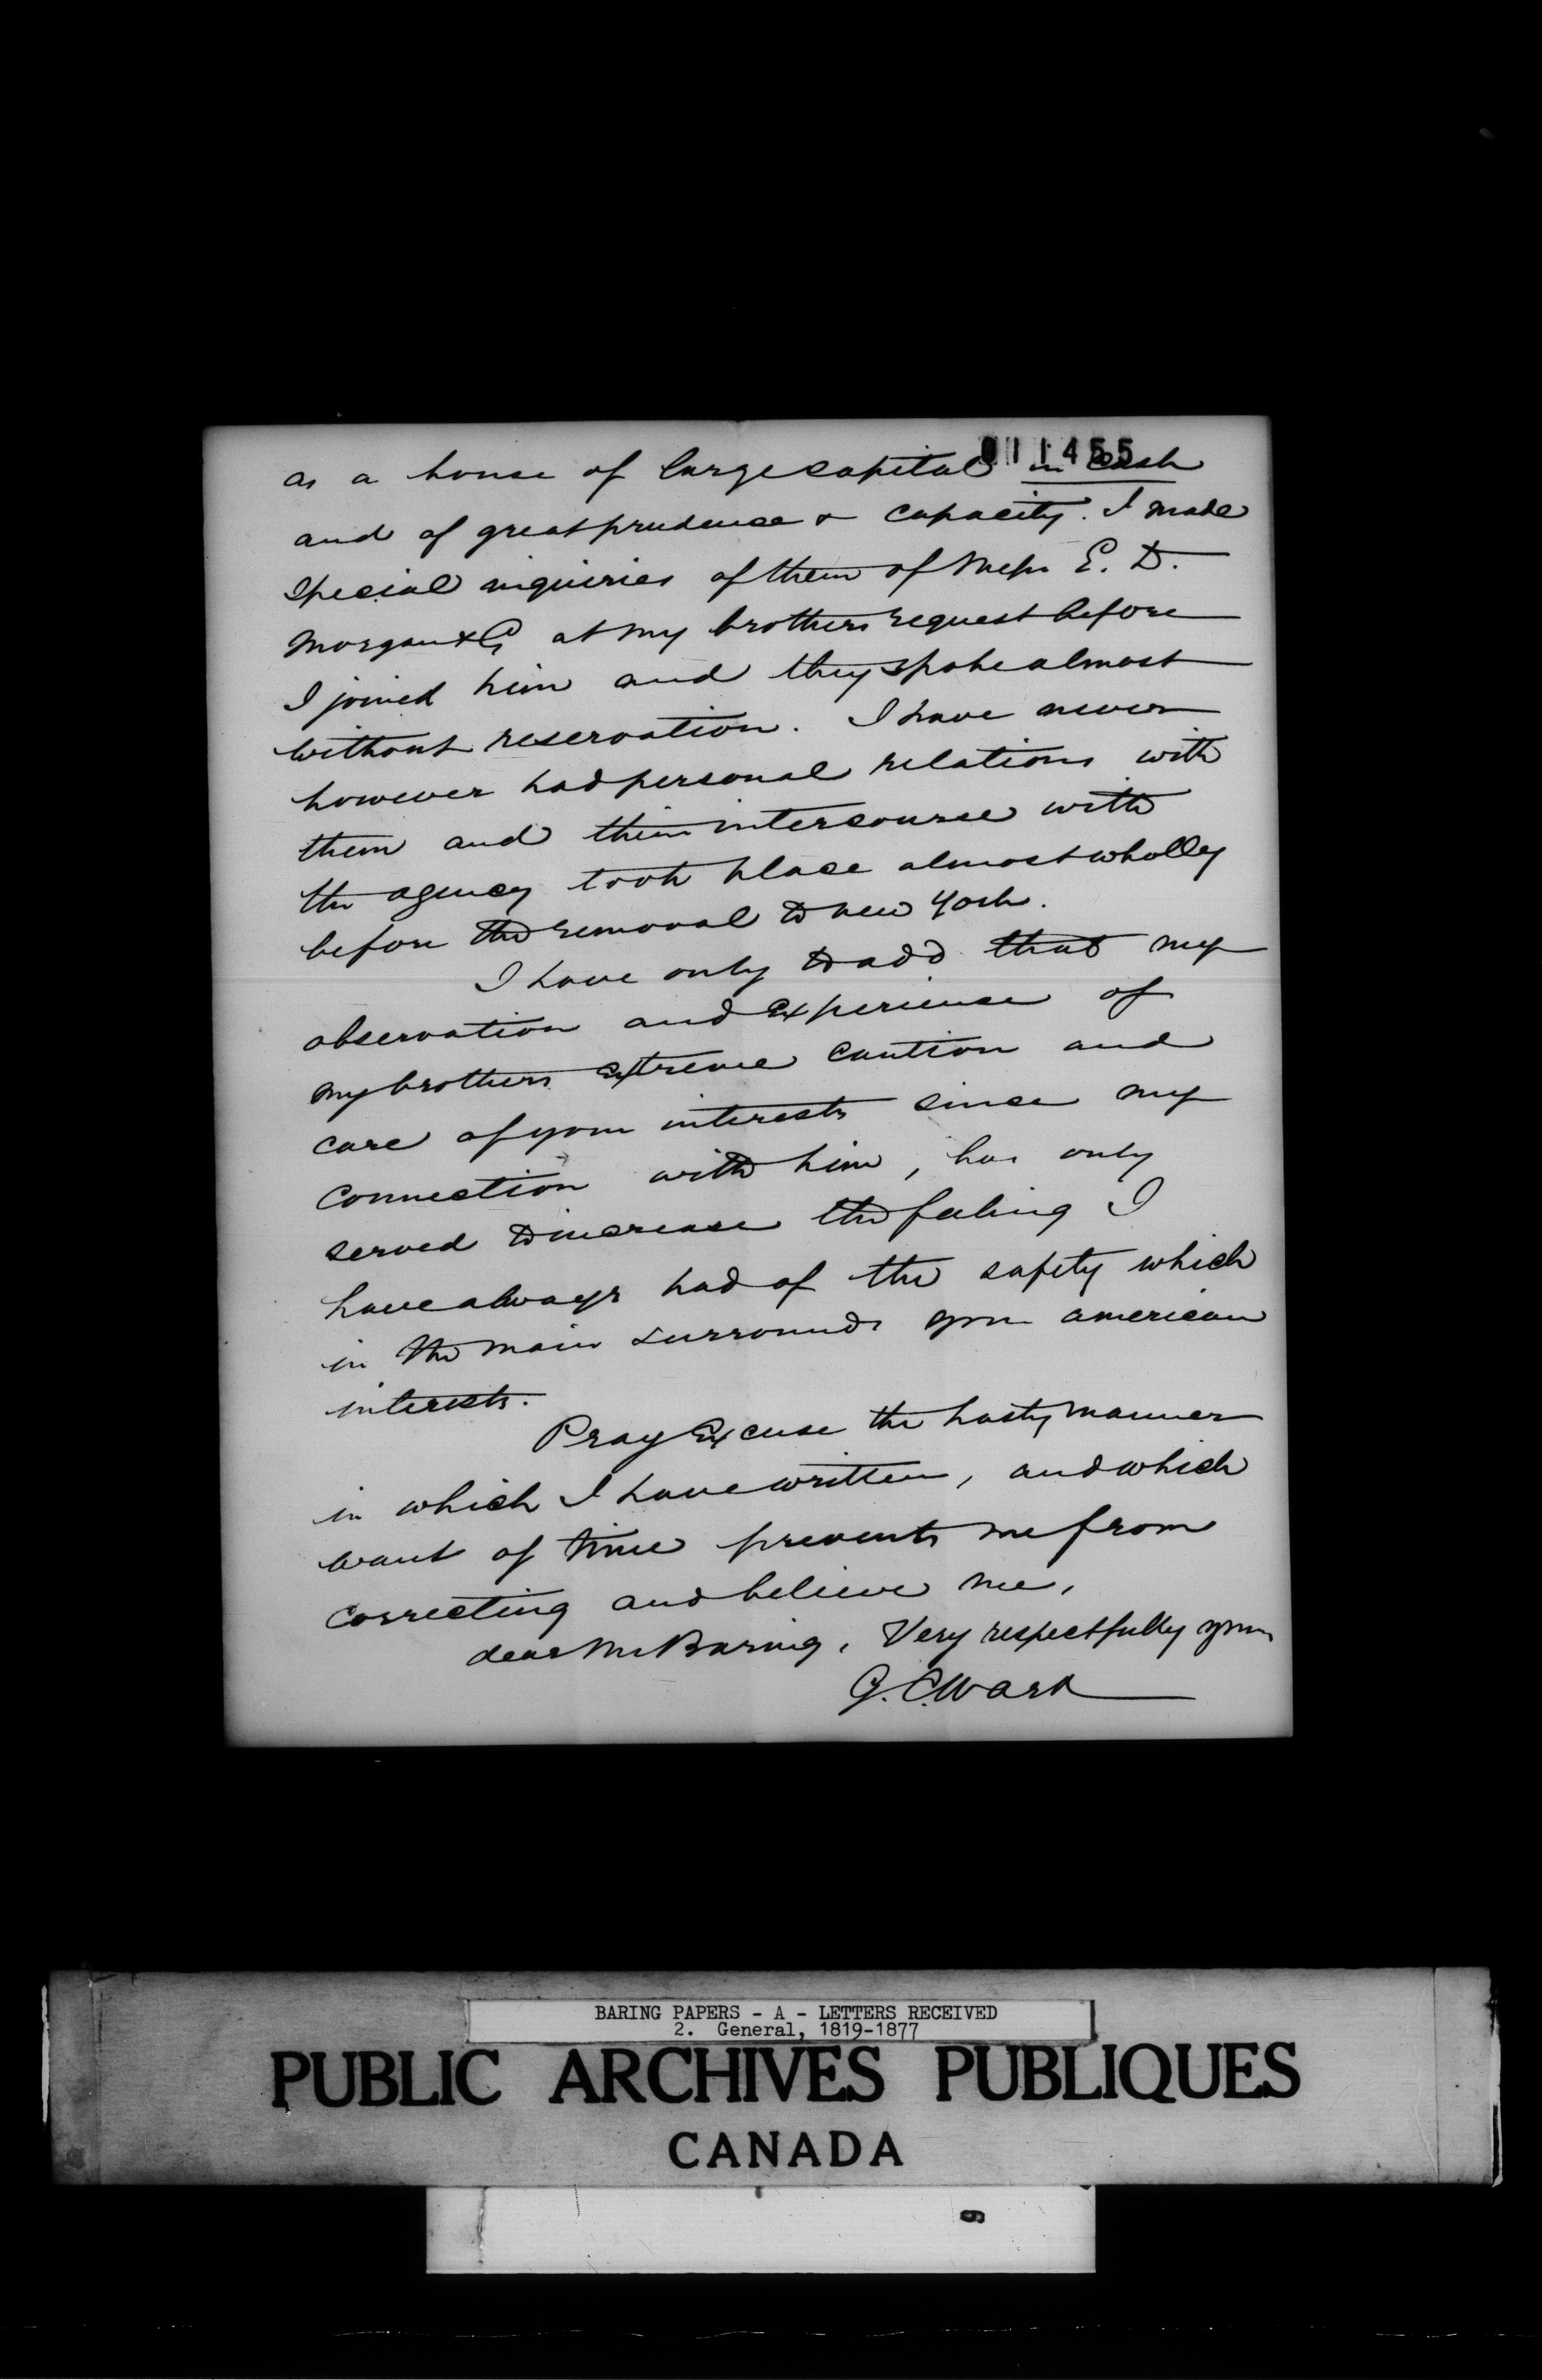 011455
as a house of large capital in cash
and of great prudence & capacity. I made
special inquiries of them of Messrs E. D.
Morgan & Co at my brothers request before
I joined him and they spoke almost
without reservation. I have never
however had personal relations with
them and their intercourse with
the agency took place almost wholly
before the removal to New York.
I have only to add that my
observation and experience of
my brothers extreme caution and
care of your interests since my
connection with him, has only
served to increase the feeling I
have always had of the safety which
in the main surrounds your american
interests.
Pray Excuse the hasty manner
in which I have written, and which
want of time prevents me from
correcting and believe me,
dear Mr Baring, Very respectfully yours
G. C. Ward
BARING PAPERS - A - LETTERS RECEIVED
2. General, 1819-1877
PUBLIC ARCHIVES PUBLIQUES
CANADA